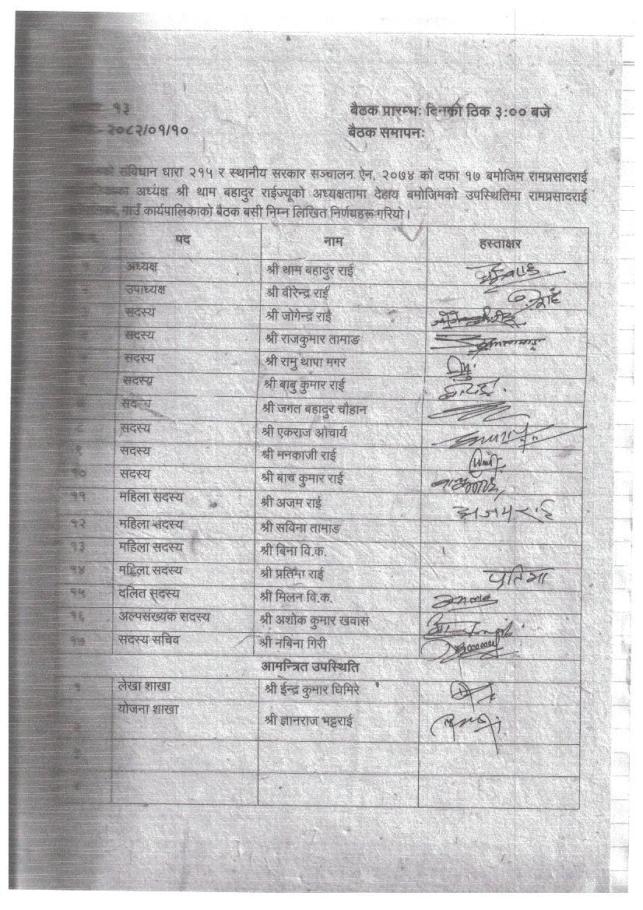 १३ बैठक प्रारम्भः दिनको ठिक ३:०० बजे
२०८२/०१/१० बैठक समापनः
संविधान धारा २१५ र स्थानीय सरकार सञ्चालन ऐन, २०७४ को दफा १७ बमोजिम रामप्रसादराई
अध्यक्ष श्री थाम बहादुर राईज्यूको अध्यक्षतामा देहाय बमोजिमको उपस्थितिमा रामप्रसादराई
गाउँ कार्यपालिकाको बैठक बसी निम्न लिखित निर्णयहरू गरियो।
पद नाम हस्ताक्षर
अध्यक्ष श्री थाम बहादुर राई
उपाध्यक्ष श्री वीरेन्द्र राई
सदस्य श्री जोगेन्द्र राई
सदस्य श्री राजकुमार तामाङ
सदस्य श्री रामु थापा मगर
सदस्य श्री बाबु कुमार राई
सदस्य श्री जगत बहादुर चौहान
सदस्य श्री एकराज ओचार्य
९ सदस्य श्री मनकाजी राई
१० सदस्य श्री बाच कुमार राई
११ महिला सदस्य श्री अजम राई अजमराई
१२ महिला सदस्य श्री सविना तामाङ
१३ महिला सदस्य श्री बिना वि.क.
१४ महिला सदस्य श्री प्रतिमा राई प्रतिमा
१५ दलित सदस्य श्री मिलन वि.क.
१६ अल्पसंख्यक सदस्य श्री अशोक कुमार खवास
१७ सदस्य सचिव श्री नबिना गिरी
आमन्त्रित उपस्थिति
१ लेखा शाखा श्री ईन्द्र कुमार घिमिरे
योजना शाखा श्री ज्ञानराज भट्टराई